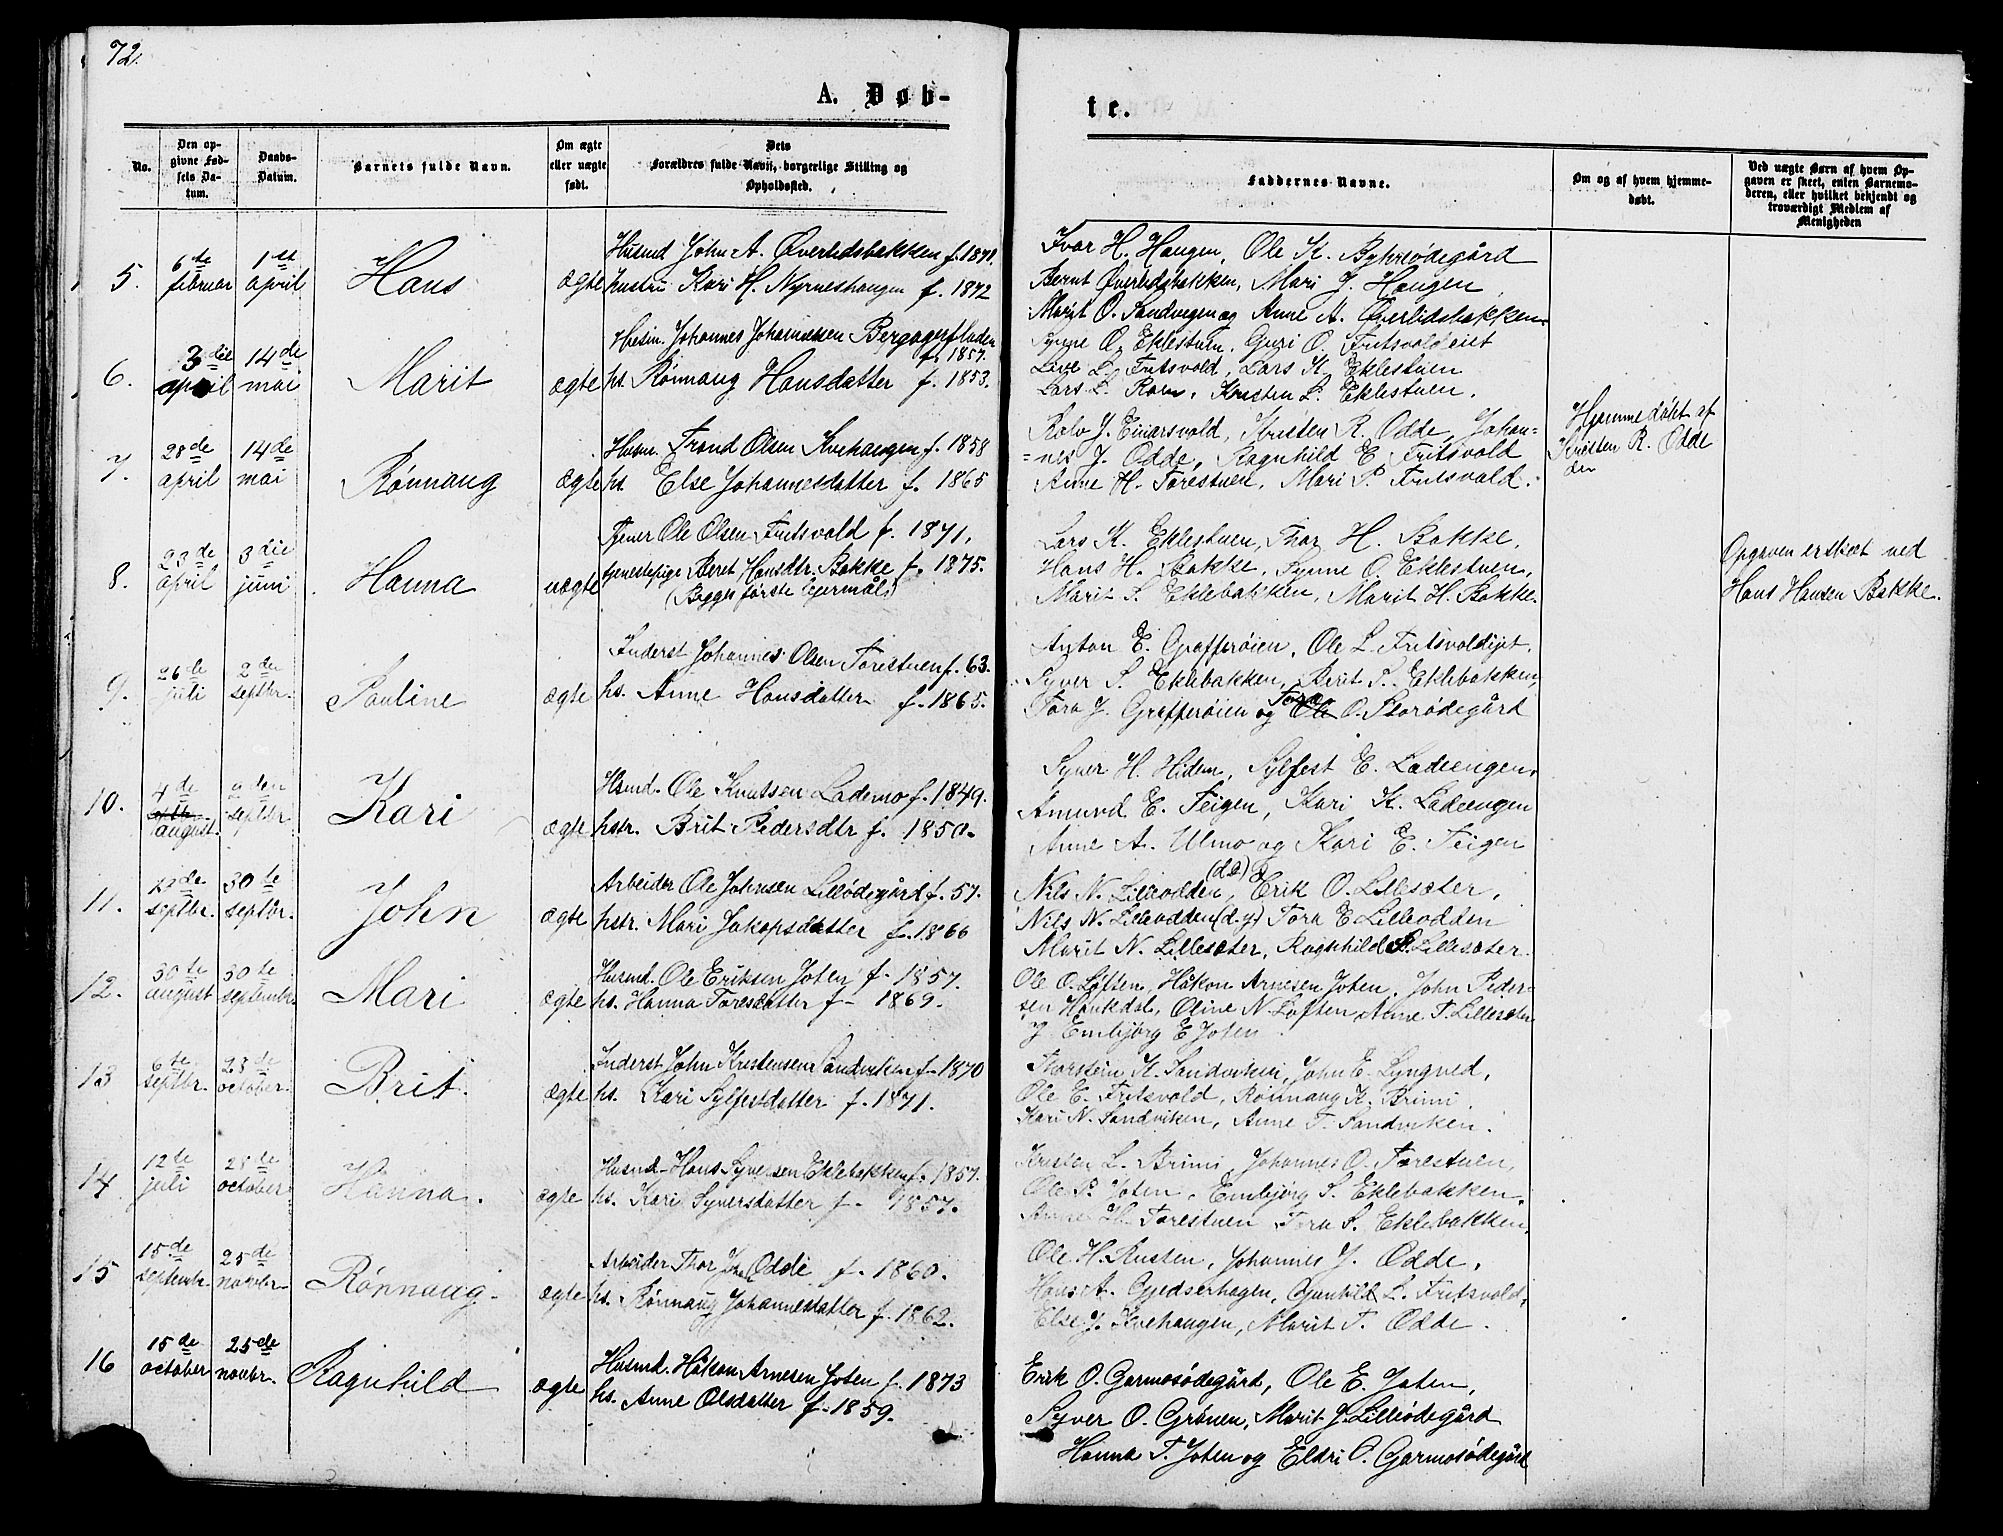 72.
A. Døb-
te.
No.
Den op-
givne Fød-
sels Da-
tum.
Daabs-
Datum.
Barnets fulde Navn.
Om ægte
eller uægte
født.
Dets
Forældres fulde Navn, borgerlige Stilling og
Opholdssted.
Faddernes Navne.
Om og af hvem hjemme-
døbt.
Ved uægte Børn af hvem Op-
gaven er skeet, enten Barnemo-
deren, eller hvilket bekjendt og
troværdigt Medlem af
Menigheden
5. 6te februar 1ste april Hans ægte
Husmd John A. Øverlidsbakken f.
hustru Kari H. Nyrneshaugen f. 1872
Ivar H. Haugen, Ole K. Byhrødegård
Bernt Øverlidsbakken, Mari J. Haugen
Marit O. Sandvegen og Anne A. Øverlidsbakken.
6. 3die april 14de mai Marit ægte
Husm. Johannes Johannessen Bergager
f. 1857.
hs. Rønnaug Hansdatter f. 1853.
Synne O. Eklestuen, Guri O. Fritsvoldeiet
L. Fritsvold, Lars K. Eklestuen
Lars L. Kristen L. Eklestuen.
7. 28de april 14de mai Rønnaug ægte
Husm. Trond Olsen Kvehaugen f. 1858
hs. Else Johannesdatter f. 1865
Rolv J. Einarsvold, Kristen R. Odde, Johan-
=nes J. Odde, Ragnhild E. Fritsvold
Anne H. Torestuen, Mari P. Fritsvold.
Hjemmedøbt af
Kristen R. Odde
8. 23de april 3die juni Hanna uægte
Tjener Ole Olsen Fritsvold f. 1871,
tjenestepige Beret Hansdtr. Bakke f. 1875.
(Begges første lejermål)
Lars K. Eklestuen, Thor H. Bakke,
Hans H. Bakke, Synne O. Eklestuen,
Marit S. Eklebakken, Marit H. Bakke.
Opgaven er skeet ved
Hans Hansen Bakke.
9. 26de juli 2den septbr. Pauline ægte
Inderst Johannes Olsen Torestuen f. 63.
hs. Anne Hansdatter f. 1865.
Anton E. Grafferøien, Ole L. Fritsvoldeiet.
Syver S. Eklebakken, Berit S. Eklebakken,
Tora J. Grafferøien og Tora O. Storødegård
10. 4de august. 2den septbr Kari ægte
Hsmd. Ole Knutsen Lademo f. 1849.
hstr. Brit Pedersdtr f. 1850.
Syver H. Hidem, Sylfest E. Ladeengen,
Amund E. Teigen, Kari K. Ladeengen
Anne A. Ulmo og Kari E. Teigen
11. septbr. 30te septbr. John ægte
Arbeider Ole Johnsen Lilleødegård f. 57.
hstr. Mari Jakopsdatter f. 1866
Nils N. Lilleodden (d.e), Erik O. Lillesæter,
Nils N. Lilleodden (d.y) Tora E. Lilleodden
Marit N. Lillesæter, Ragnhild Lillesæter.
12. 30te august 30te septembr. Mari ægte
Husmd. Ole Eriksen Joten f. 1857.
hs. Hanna Toresdatter f. 1869.
Ole O. Håkon Arnesen Joten, John Peder-
sen Haukdal, Oline N. Løften, Anne T. Lillesæter
Embjørg E. Joten
13 6te septbr. 28de october. Brit. ægte
Inderst John Kristensen Sandviken f. 1870
hs. Kari Sylfestdatter f. 1871.
Thorstein K. Sandviken, John E. Lyngved,
Ole E. Fritsvold, Rønnaug K. Brimi
Kari N. Sandviken, Anne T. Sandviken.
14. 12te juli 28de october Hanna. ægte
Husmd. Hans Syversen Eklebakken f. 1857.
hs. Kari Syversdatter f. 1857.
Kristen L. Brimi, Johannes O. Torestuen,
Ole P. Joten, Embjørg S. Eklebakken,
Anne H. Torestuen Tora S. Eklebakken,
15 15de septembr. 25de novbr. Rønnaug. ægte
Arbeider Thor Odde f. 1860.
hs. Rønnaug Johannesdatter f. 1862.
Ole H. Rusten, Johannes J. Odde,
Hans A. Gjedserhagen, Gunhild L. Fritsvold,
Else J. Kvehaugen, Marit T. Odde.
16 15de october 25de novbr. Ragnhild ægte
Husmd. Håkon Arnesen Joten f. 1873
hs. Anne Olsdatter f. 1859.
Erik O. Garmosødegård, Ole E. Joten,
Syver O. Grønen, Marit J. Lilleødegård
Hanna T. Joten og Eldri O. Garmosødegård